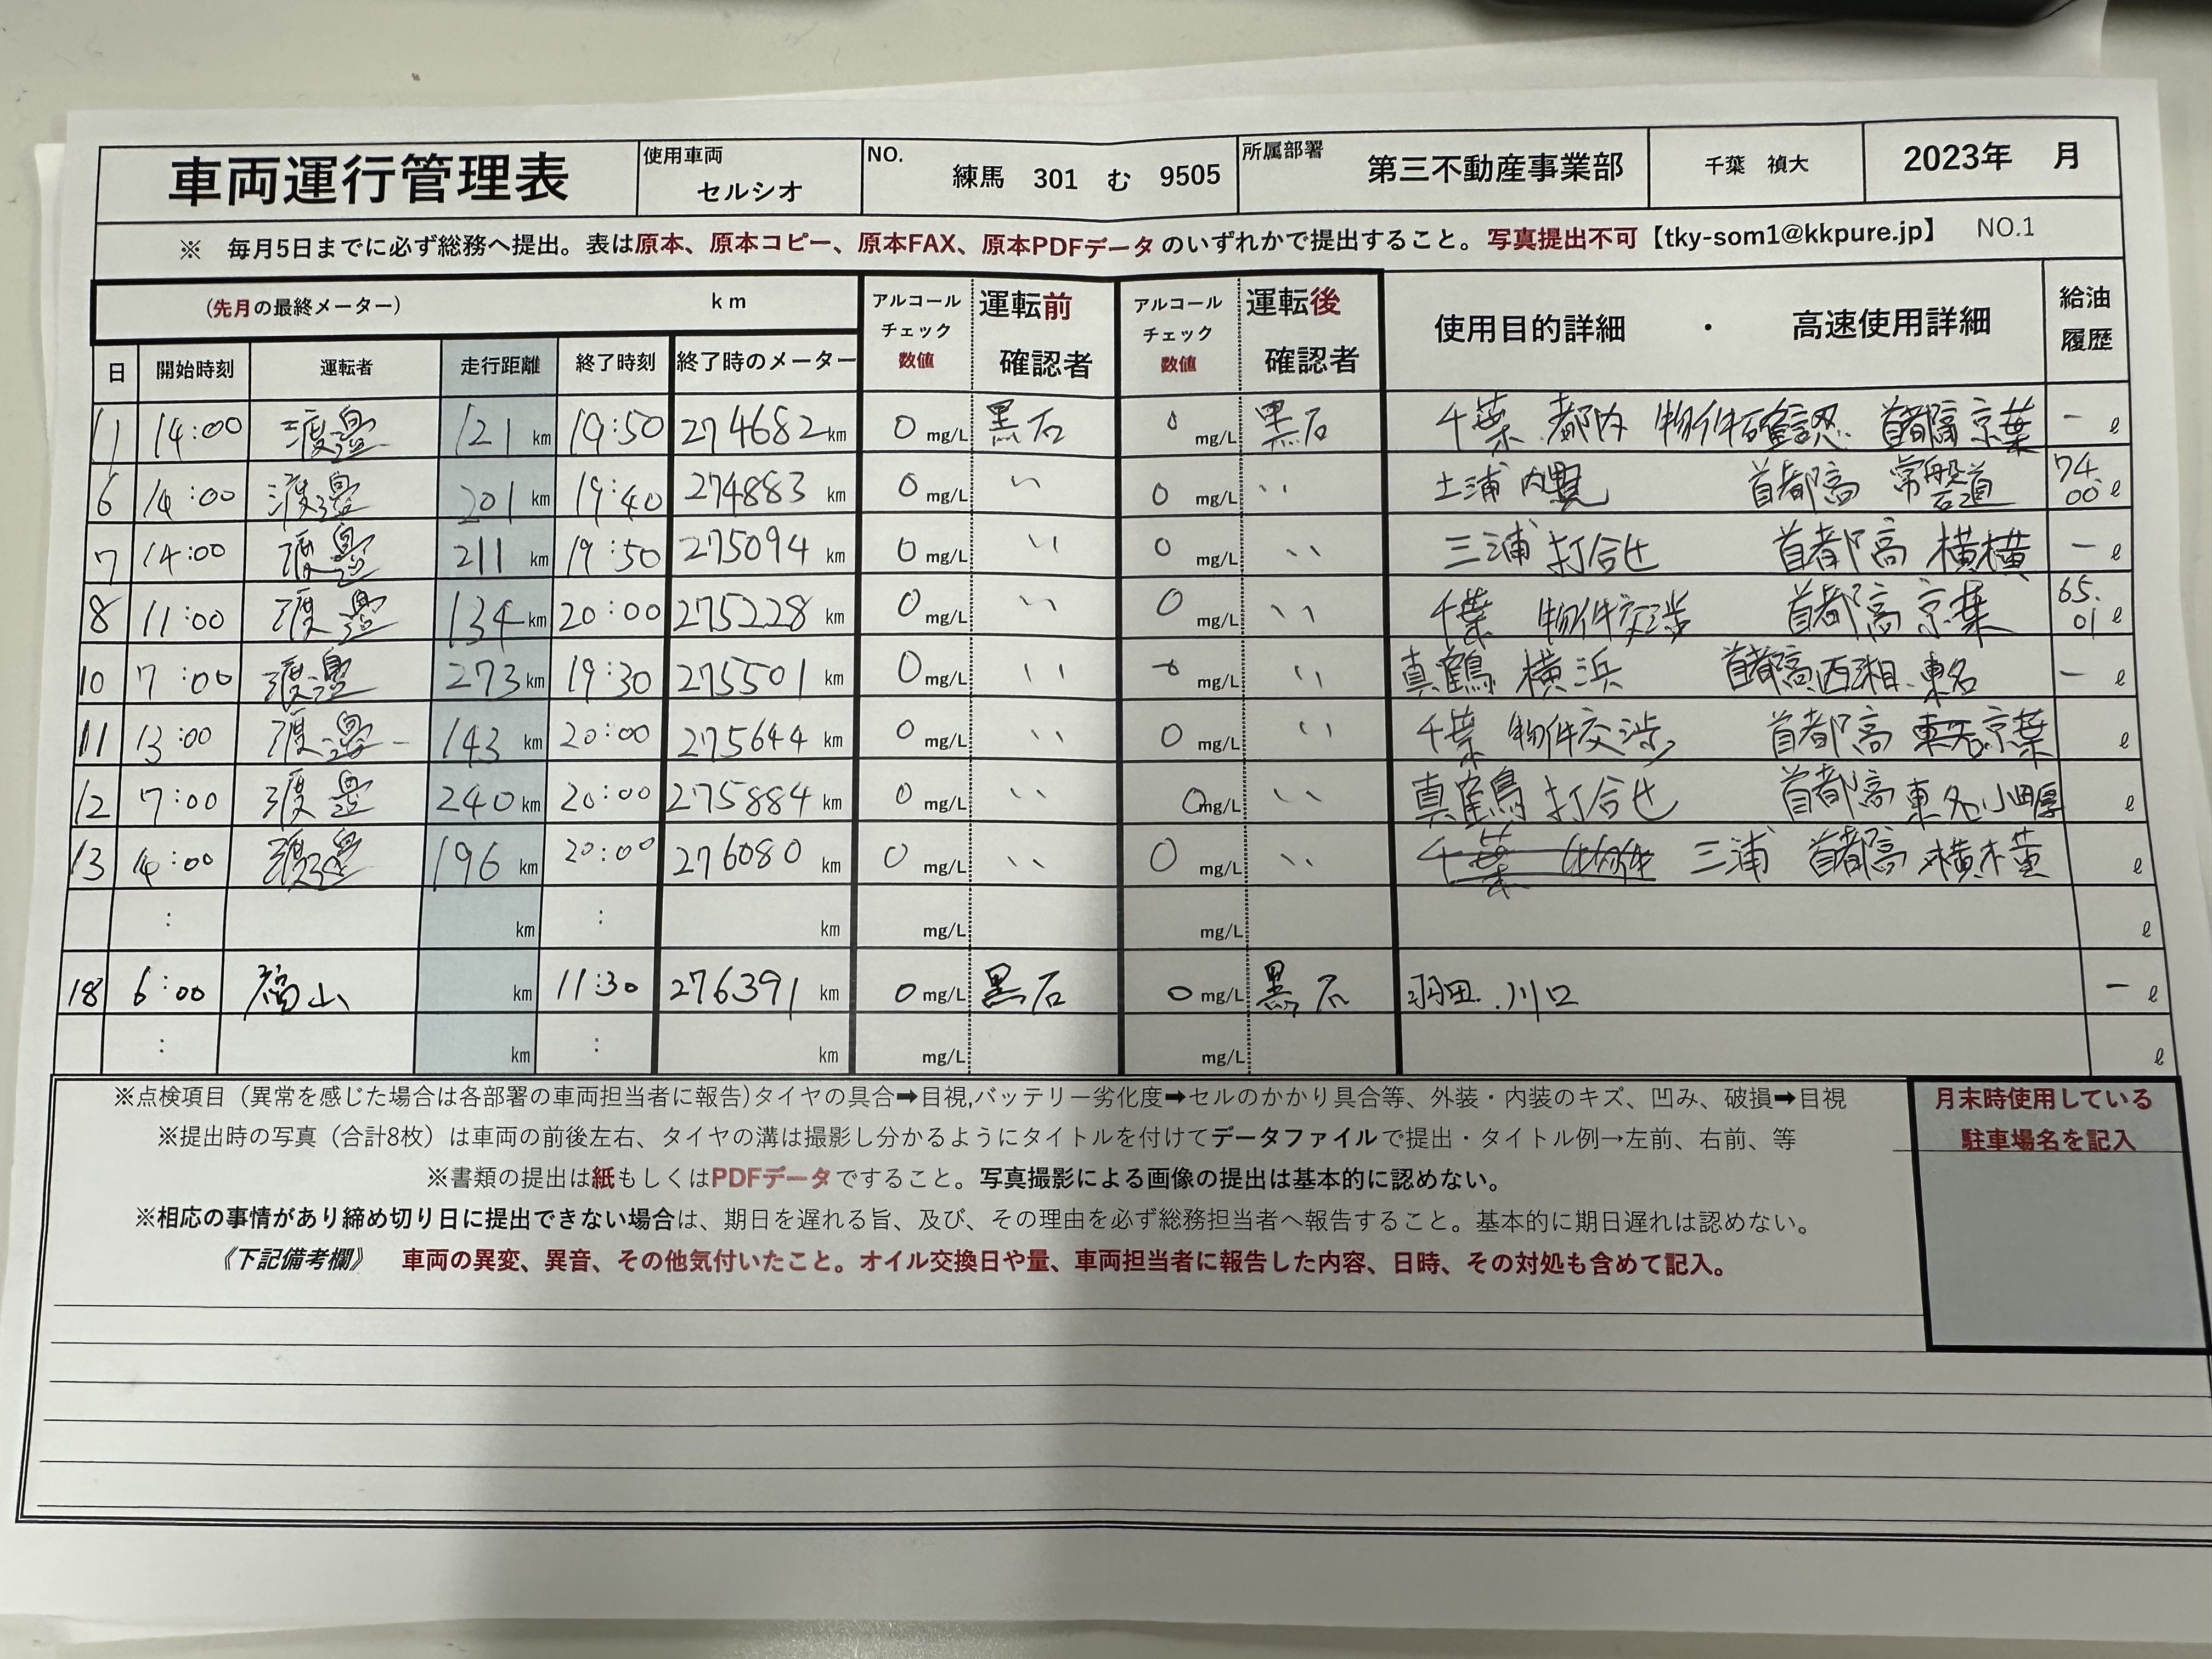 車両運行管理表 使用車両 セルシオ NO. 練馬 301 む 9505 所属部署 第三不動産事業部 千葉 禎大 2023年 月
※ 毎月5日までに必ず総務へ提出。表は原本、原本コピー、原本FAX、原本PDFデータのいずれかで提出すること。写真提出不可【tky-som1@kkpure.jp】 NO.1
(先月の最終メーター) km アルコールチェック数値 運転前確認者 アルコールチェック数値 運転後確認者 使用目的詳細 ・ 高速使用詳細 給油履歴
日 開始時刻 運転者 走行距離 終了時刻 終了時のメーター
1 14:00 渡邉 121 km 19:50 274682 km 0 mg/L 黒石 0 mg/L 黒石 千葉 都内 物件確認 首都高 京葉 - ℓ
6 14:00 渡邉 201 km 19:40 274883 km 0 mg/L 〃 0 mg/L 〃 土浦 内覧 首都高 常磐道 74.00 ℓ
7 14:00 渡邉 211 km 19:50 275094 km 0 mg/L 〃 0 mg/L 〃 三浦 打合せ 首都高 横横 - ℓ
8 11:00 渡邉 134 km 20:00 275228 km 0 mg/L 〃 0 mg/L 〃 千葉 物件交渉 首都高 京葉 65.01 ℓ
10 7:00 渡邉 273 km 19:30 275501 km 0 mg/L 〃 0 mg/L 〃 真鶴 横浜 首都高 西湘 東名 - ℓ
11 13:00 渡邉 143 km 20:00 275644 km 0 mg/L 〃 0 mg/L 〃 千葉 物件交渉 首都高 京葉 ℓ
12 7:00 渡邉 240 km 20:00 275884 km 0 mg/L 〃 0 mg/L 〃 真鶴 打合せ 首都高 東名 小田厚 ℓ
13 :00 渡邉 196 km 20:00 276080 km 0 mg/L 〃 0 mg/L 〃 千葉 物件 三浦 首都高 横横 ℓ
: km : km mg/L mg/L ℓ
18 6:00 福山 km 11:30 276391 km 0 mg/L 黒石 0 mg/L 黒石 羽田 川口 - ℓ
: km : km mg/L mg/L ℓ
※点検項目（異常を感じた場合は各部署の車両担当者に報告)タイヤの具合➡目視,バッテリー劣化度➡セルのかかり具合等、外装・内装のキズ、凹み、破損➡目視
※提出時の写真（合計8枚）は車両の前後左右、タイヤの溝は撮影し分かるようにタイトルを付けてデータファイルで提出・タイトル例→左前、右前、等
※書類の提出は紙もしくはPDFデータですること。写真撮影による画像の提出は基本的に認めない。
※相応の事情があり締め切り日に提出できない場合は、期日を遅れる旨、及び、その理由を必ず総務担当者へ報告すること。基本的に期日遅れは認めない。
《下記備考欄》 車両の異変、異音、その他気付いたこと。オイル交換日や量、車両担当者に報告した内容、日時、その対処も含めて記入。
月末時使用している
駐車場名を記入